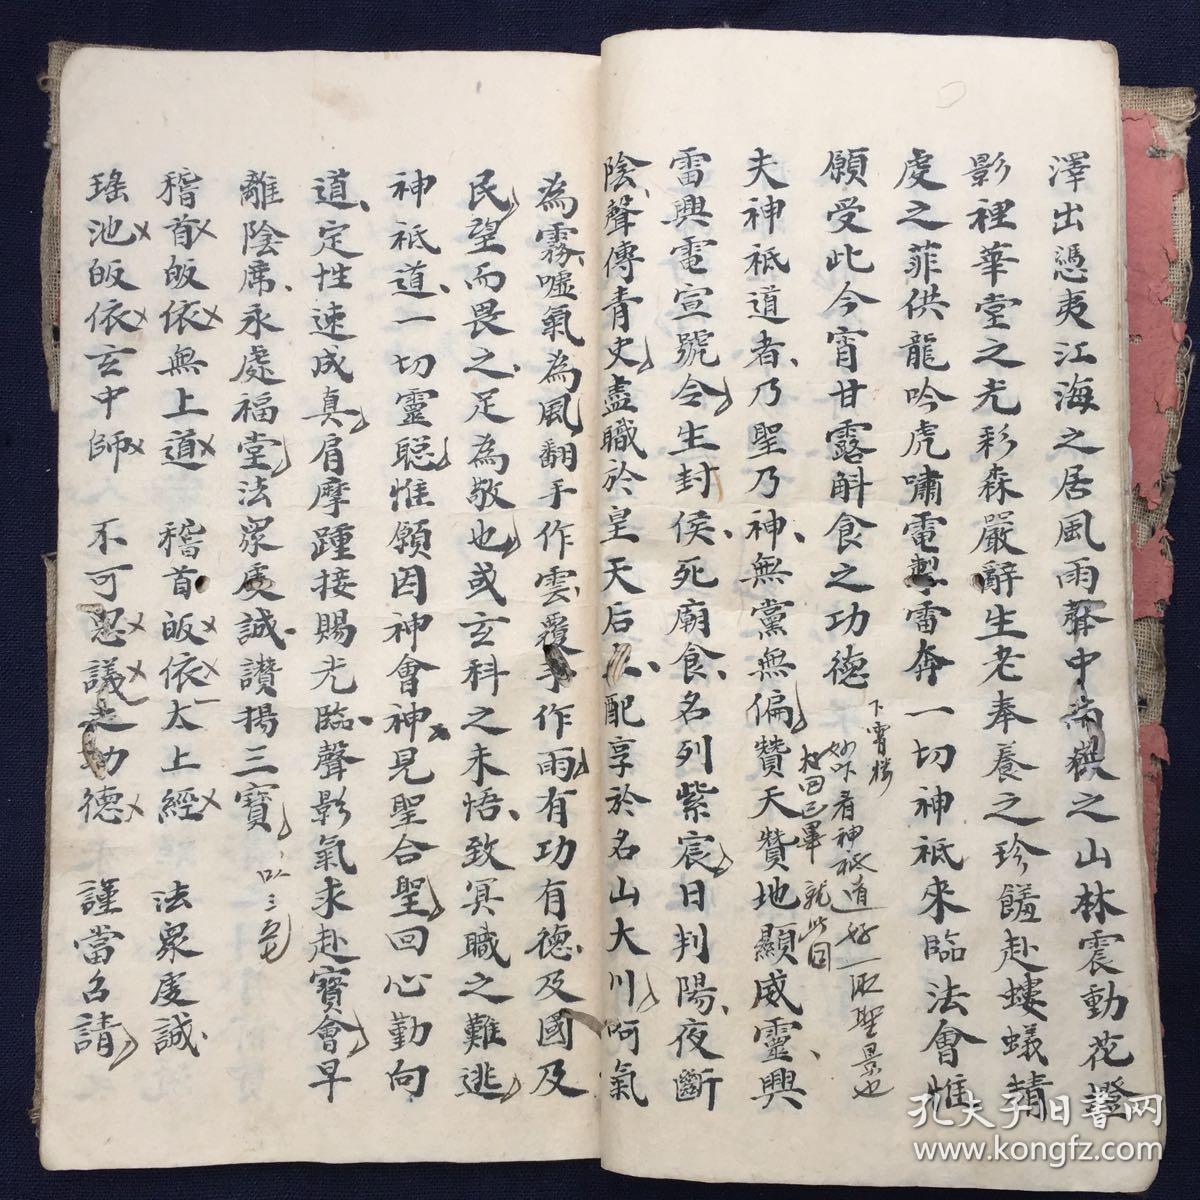 澤出憑夷江海之居風雨聲中嶽之山林震動花燈
影裡華堂之光彩森嚴辭生老奉養之珍饈赴螻蟻精
虔之菲供龍吟虎嘯電掣雷奔一切神祇來臨法會惟
願受此今宵甘露斛食之功德
夫神祇道者乃聖乃神無黨無偏贊天贊地顯威靈興
雷興電宣號令生封侯死廟食名列紫宸日判陽夜斷
陰聲傳青史盡職於皇天后配享於名山大川呵氣
為霧噓氣為風翻手作雲覆手作雨有功有德及國及
民望而畏之足為敬也或玄科之未悟致冥職之難逃
神祇道一切靈聰惟願因神會神見聖合聖回心勤向
道定性速成真肩摩踵接賜光臨聲影氣求赴寶會早
離陰席永處福堂法眾虔誠讚揚三寶
稽首皈依無上道 稽首皈依太上經 法眾虔誠
瑤池皈依玄中師 不可思議功德 謹當召請